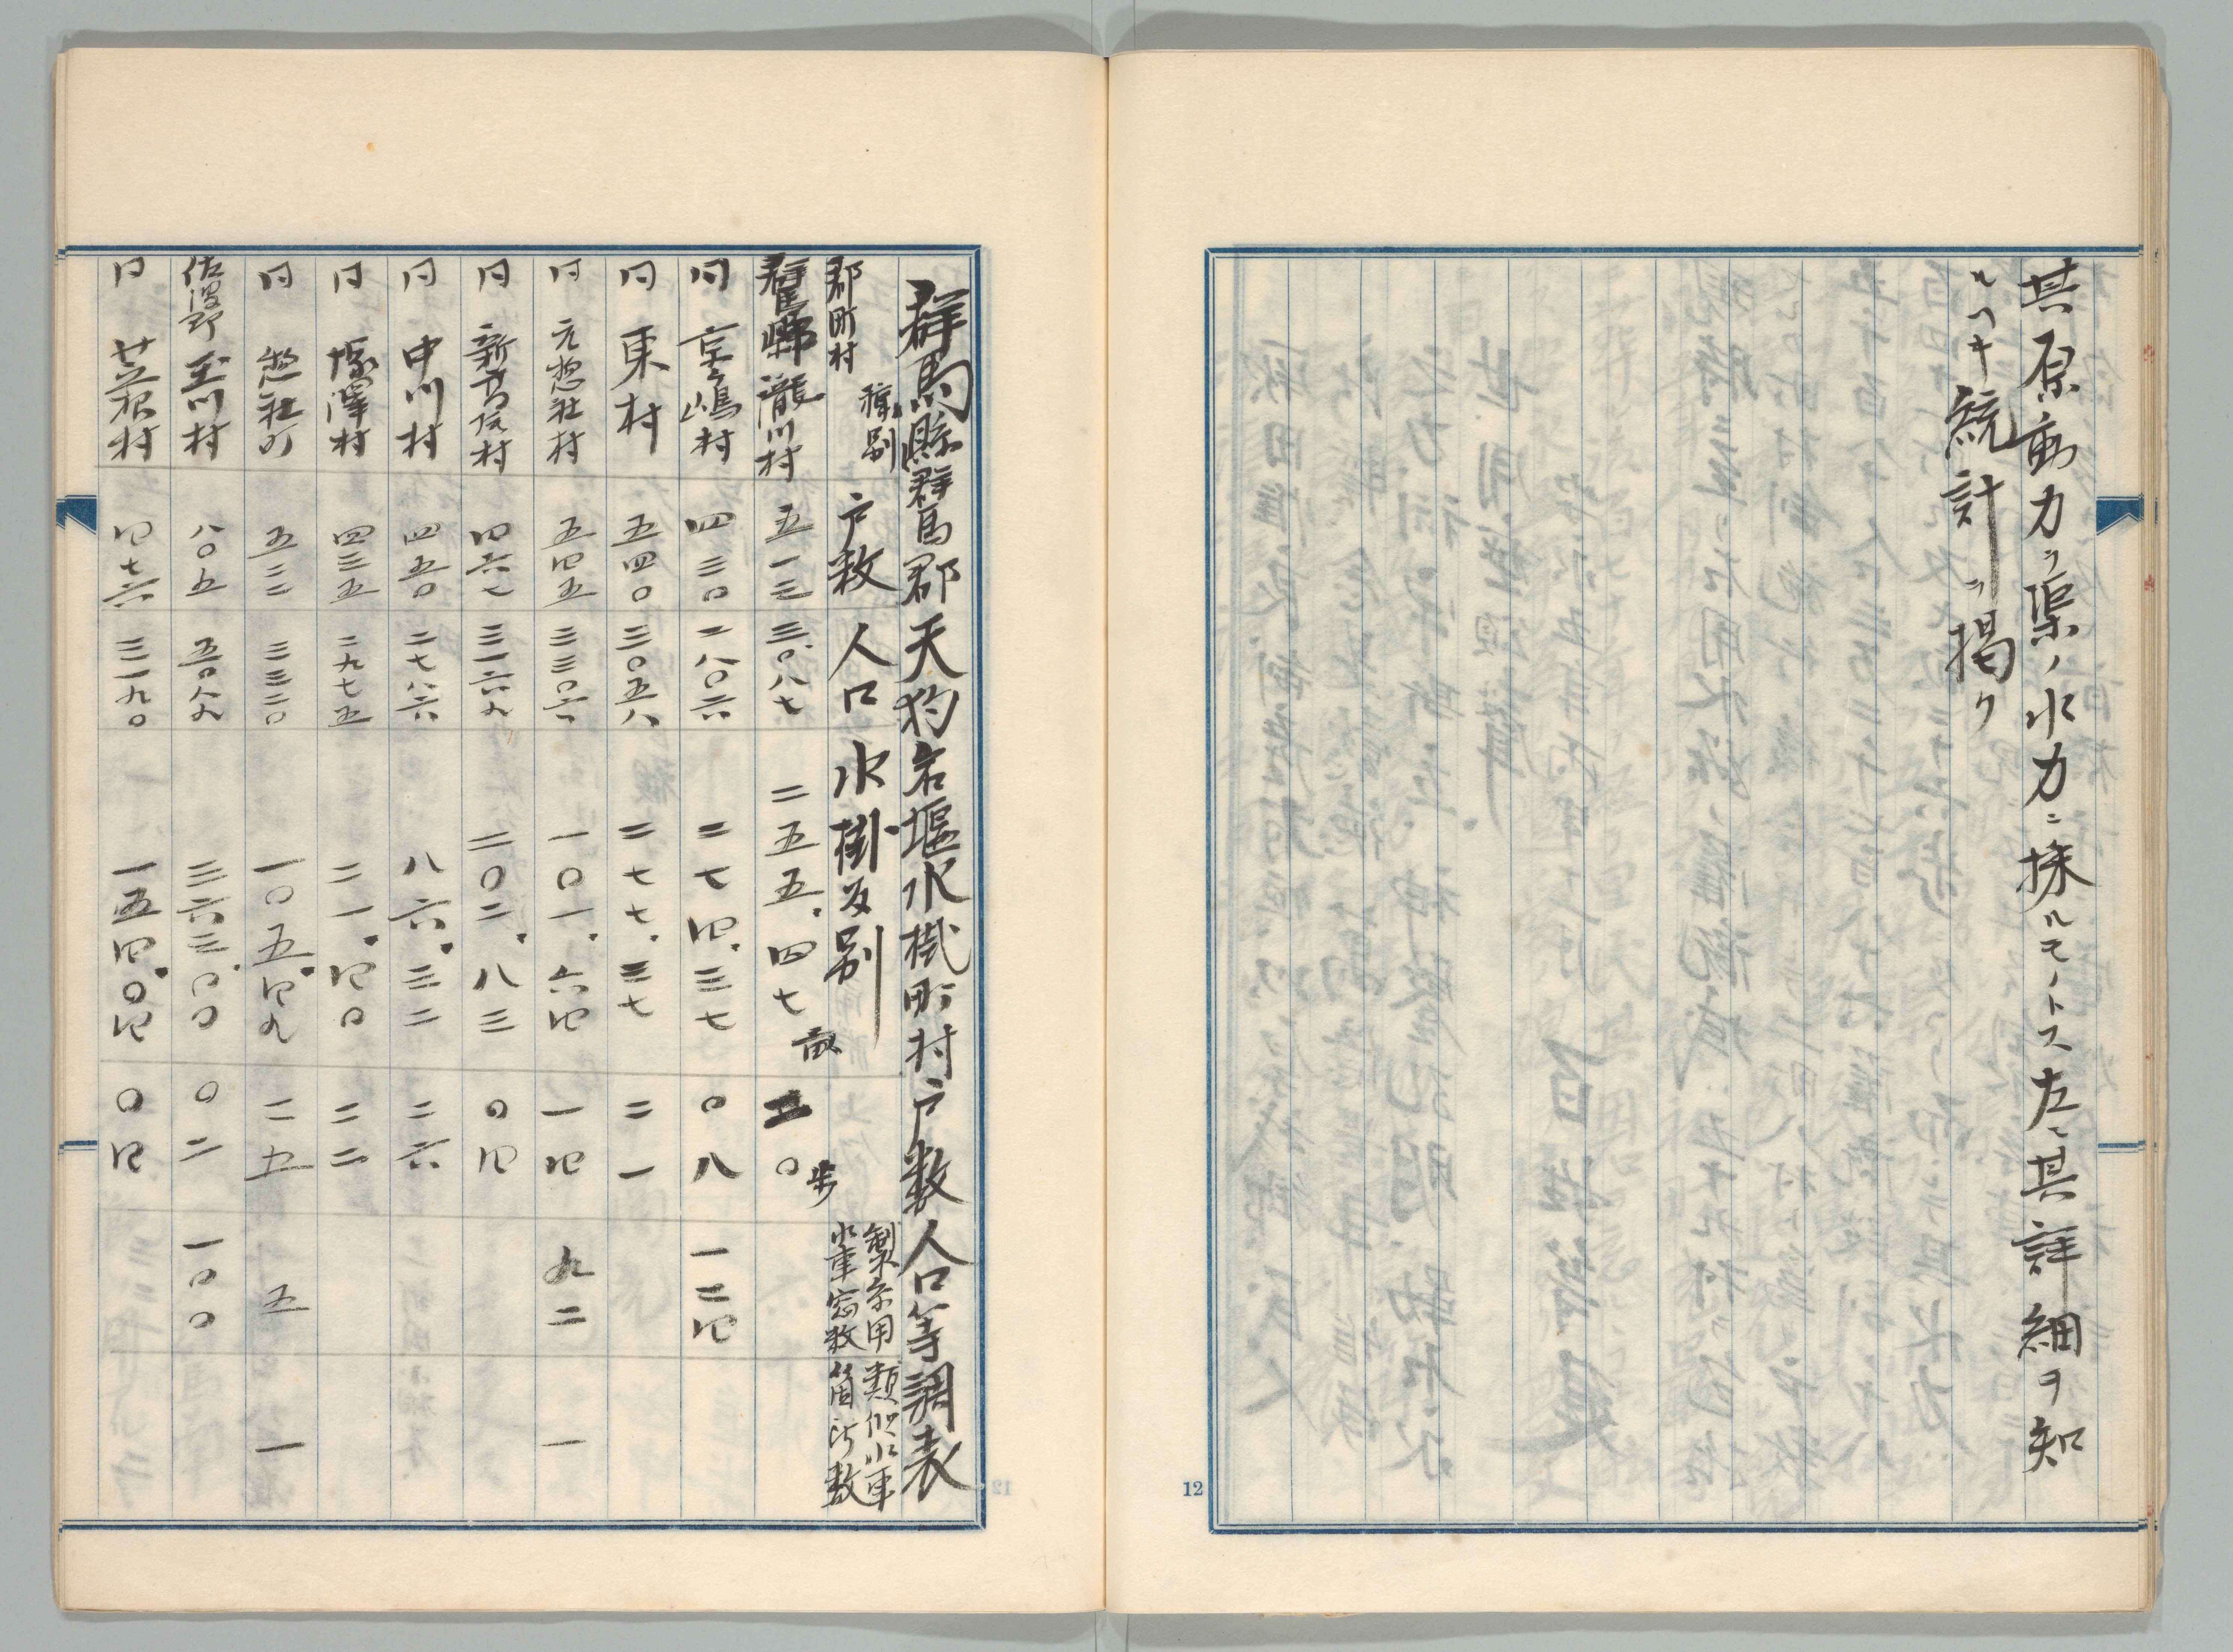 其原動力ヲ渠ノ水力ニ採ルモノトス左ニ其詳細ヲ知
ルヘキ統計ヲ掲ク
12
群馬縣群馬郡天狗岩堰水掛町村戸数人口等調表
郡町村 種別 戸数 人口 水掛反別 製糸用水車窓数 類似水車箇所数
群馬郡 瀧川村 五一三 三〇八七 二五五.四七畝 二〇歩
同 京ヶ嶋村 四三〇 二八〇六 二七四.三七 〇八 一二四
同 東村 五四〇 三〇五八 二七七.三七 二一
同 元惣社村 五四五 三三〇六 一〇一.六四 一四 九二 一
同 新高尾村 四六七 三一六九 二〇二.八三 〇四
同 中川村 四五〇 二七八六 八六.三二 二六
同 塚澤村 四三五 二九七五 二一.四〇 二二
同 惣社町 五三二 三三二〇 一〇五.四九 二五 五 一
佐波郡 玉村 八〇五 五〇八九 三六三.〇〇 〇二 一〇〇
同 芝根村 四七六 三一九〇 一五四.〇四 〇四